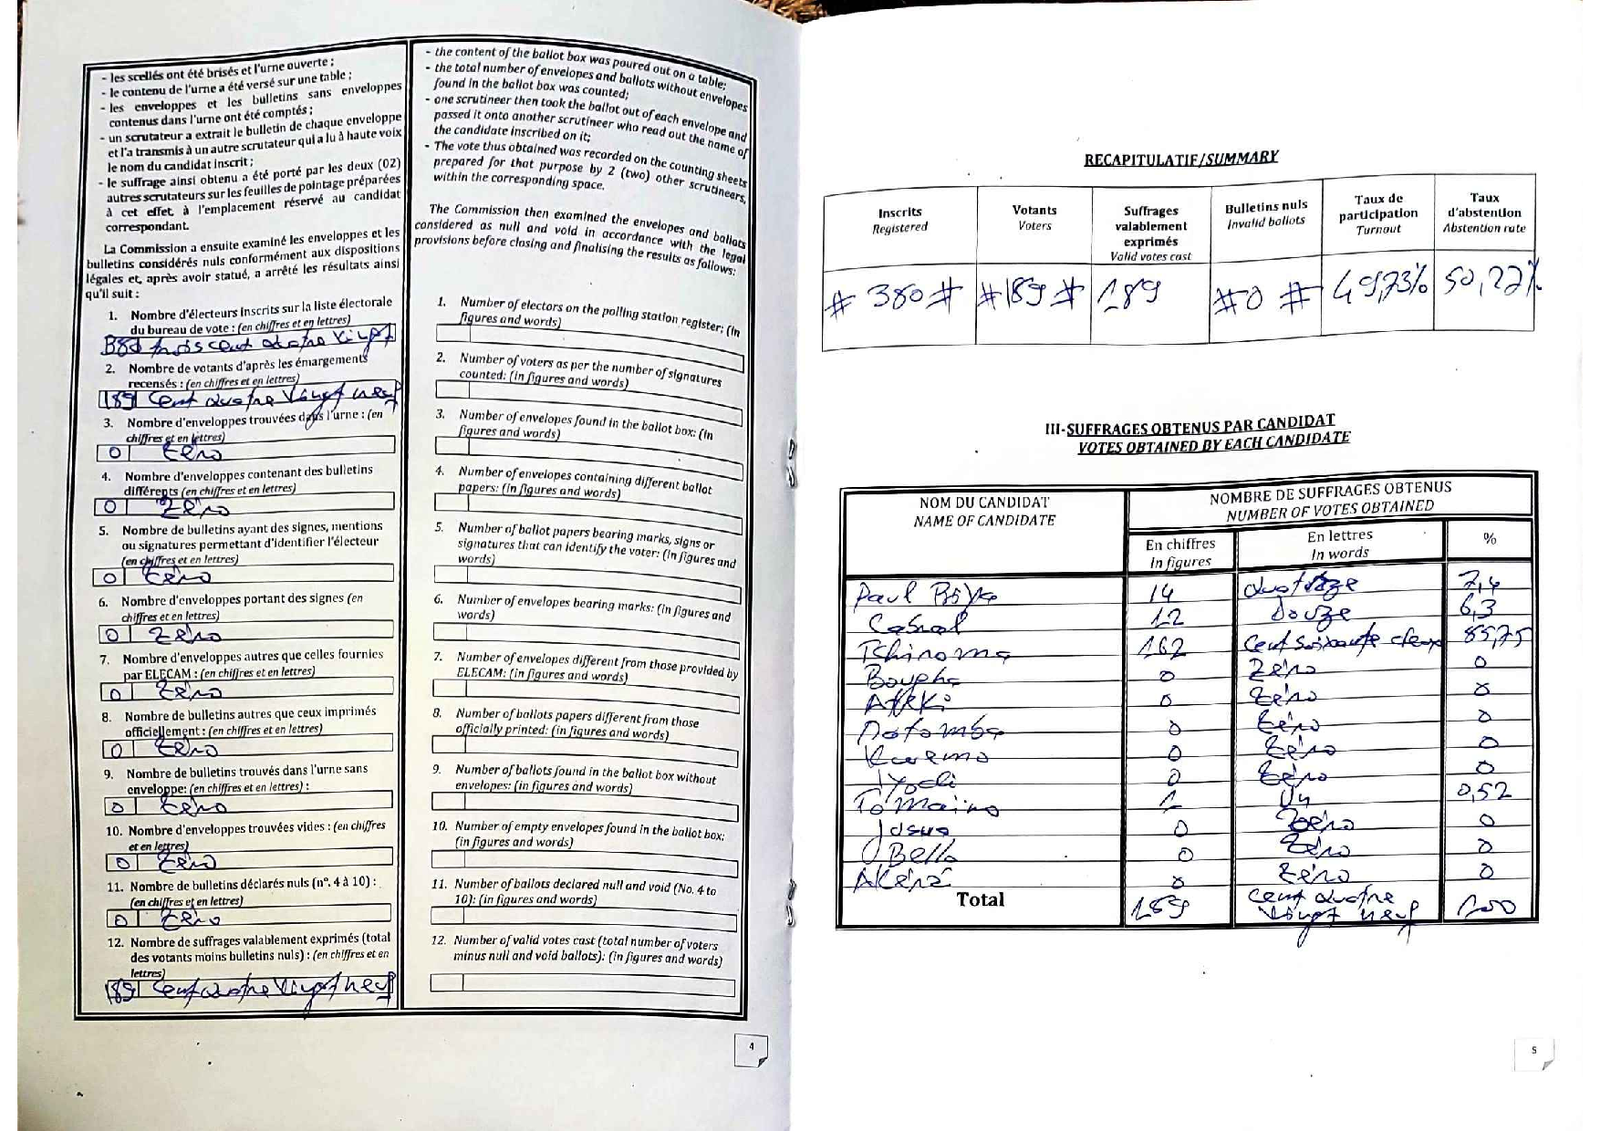 - les scellés ont été brisés et l'urne ouverte ;
- le contenu de l'urne a été versé sur une table ;
- les enveloppes et les bulletins sans enveloppes
contenus dans l'urne ont été comptés ;
- un scrutateur a extrait le bulletin de chaque enveloppe
et l'a transmis à un autre scrutateur qui a lu à haute voix
le nom du candidat inscrit ;
- le suffrage ainsi obtenu a été porté par les deux (02)
autres scrutateurs sur les feuilles de pointage préparées
à cet effet, à l'emplacement réservé au candidat
correspondant.
La Commission a ensuite examiné les enveloppes et les
bulletins considérés nuls conformément aux dispositions
légales et, après avoir statué, a arrêté les résultats ainsi
qu'il suit :
1. Nombre d'électeurs inscrits sur la liste électorale
du bureau de vote : (en chiffres et en lettres)
380 trois cent quatre vingt
2. Nombre de votants d'après les émargements
recensés : (en chiffres et en lettres)
189 cent quatre vingt neuf
3. Nombre d'enveloppes trouvées dans l'urne : (en
chiffres et en lettres)
0 Zéro
4. Nombre d'enveloppes contenant des bulletins
différents (en chiffres et en lettres)
0 Zéro
5. Nombre de bulletins ayant des signes, mentions
ou signatures permettant d'identifier l'électeur
(en chiffres et en lettres)
0 Zéro
6. Nombre d'enveloppes portant des signes (en
chiffres et en lettres)
0 Zéro
7. Nombre d'enveloppes autres que celles fournies
par ELECAM : (en chiffres et en lettres)
0 Zéro
8. Nombre de bulletins autres que ceux imprimés
officiellement : (en chiffres et en lettres)
0 Zéro
9. Nombre de bulletins trouvés dans l'urne sans
enveloppe: (en chiffres et en lettres) :
0 Zéro
10. Nombre d'enveloppes trouvées vides : (en chiffres
et en lettres)
0 Zéro
11. Nombre de bulletins déclarés nuls (n°. 4 à 10) :
(en chiffres et en lettres)
0 Zéro
12. Nombre de suffrages valablement exprimés (total
des votants moins bulletins nuls) : (en chiffres et en
lettres)
189 cent quatre vingt neuf
- the content of the ballot box was poured out on a table;
- the total number of envelopes and ballots without envelopes
found in the ballot box was counted;
- one scrutineer then took the ballot out of each envelope and
passed it onto another scrutineer who read out the name of
the candidate inscribed on it;
- The vote thus obtained was recorded on the counting sheets
prepared for that purpose by 2 (two) other scrutineers,
within the corresponding space.
The Commission then examined the envelopes and ballots
considered as null and void in accordance with the legal
provisions before closing and finalising the results as follows:
1. Number of electors on the polling station register: (in
figures and words)
2. Number of voters as per the number of signatures
counted: (in figures and words)
3. Number of envelopes found in the ballot box: (in
figures and words)
4. Number of envelopes containing different ballot
papers: (in figures and words)
5. Number of ballot papers bearing marks, signs or
signatures that can identify the voter: (in figures and
words)
6. Number of envelopes bearing marks: (in figures and
words)
7. Number of envelopes different from those provided by
ELECAM: (in figures and words)
8. Number of ballots papers different from those
officially printed: (in figures and words)
9. Number of ballots found in the ballot box without
envelopes: (in figures and words)
10. Number of empty envelopes found in the ballot box:
(in figures and words)
11. Number of ballots declared null and void (No. 4 to
10): (in figures and words)
12. Number of valid votes cast (total number of voters
minus null and void ballots): (in figures and words)
4
RECAPITULATIF/SUMMARY
Inscrits Registered | Votants Voters | Suffrages valablement exprimés Valid votes cast | Bulletins nuls Invalid ballots | Taux de participation Turnout | Taux d'abstention Abstention rate
# 380 # | # 189 # | 189 | # 0 # | 49,73% | 50,27%
III-SUFFRAGES OBTENUS PAR CANDIDAT
VOTES OBTAINED BY EACH CANDIDATE
NOM DU CANDIDAT NAME OF CANDIDATE | NOMBRE DE SUFFRAGES OBTENUS NUMBER OF VOTES OBTAINED
En chiffres In figures | En lettres In words | %
Paul Biya 14 quatorze 7,4
Cabral 12 Douze 6,3
Tchiroma 162 cent soixante deux 85,75
Bougha 0 Zéro 0
Ateki 0 Zéro 0
Matomba 0 Zéro 0
Kwemo 0 Zéro 0
Iyodi 0 Zéro 0
Tomaïno 1 Un 0,52
Josua 0 Zéro 0
Bello 0 Zéro 0
Akéré 0 Zéro 0
Total 189 cent quatre vingt neuf 100
5